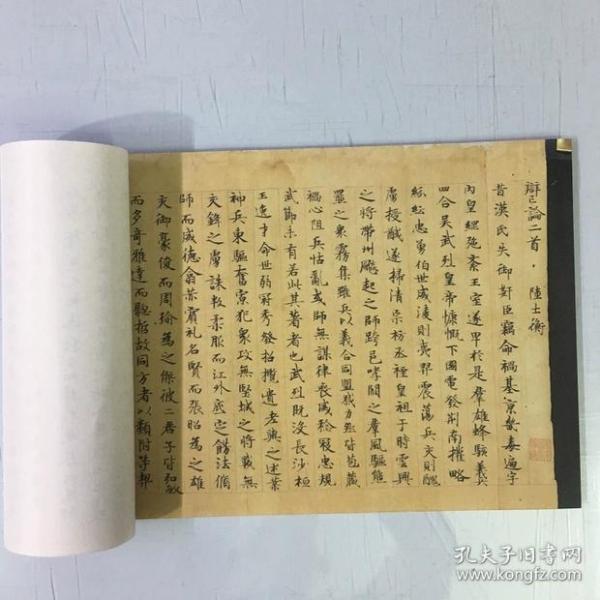 辯亡論二首 陸士衡
昔漢氏失御姧臣竊命禍基京畿毒遍宇
內皇綱弛紊王室遂卑於是羣雄蜂駭義兵
四合吳武烈皇帝慷慨下國電發荊南權略
紜紜忠勇伯世威淩則夷羿震蕩兵交則醜
虜授馘遂掃清宗祊丞禋皇祖于時雲興
之將帶州飈起之師跨邑哮闞之羣風驅熊
羆之衆霧集雖兵以義合同盟戮力然皆苞藏
禍心阻兵怙亂或師無謀律喪威稔寇忠規
武節未有若此其著者也武烈既沒長沙桓
王逸才命世弱冠秀發招攬遺老與之述業
神兵東驅奮寡犯衆攻無堅城之將戰無
交鋒之虜誅叛柔服而江外厎定飭法脩
師而威德翕赫賓礼名賢而張昭為之雄
交御豪俊而周瑜為之傑彼二君子皆弘敏
而多奇雅達而聰哲故同方者以類附等
孔夫子旧书网
www.kongfz.com